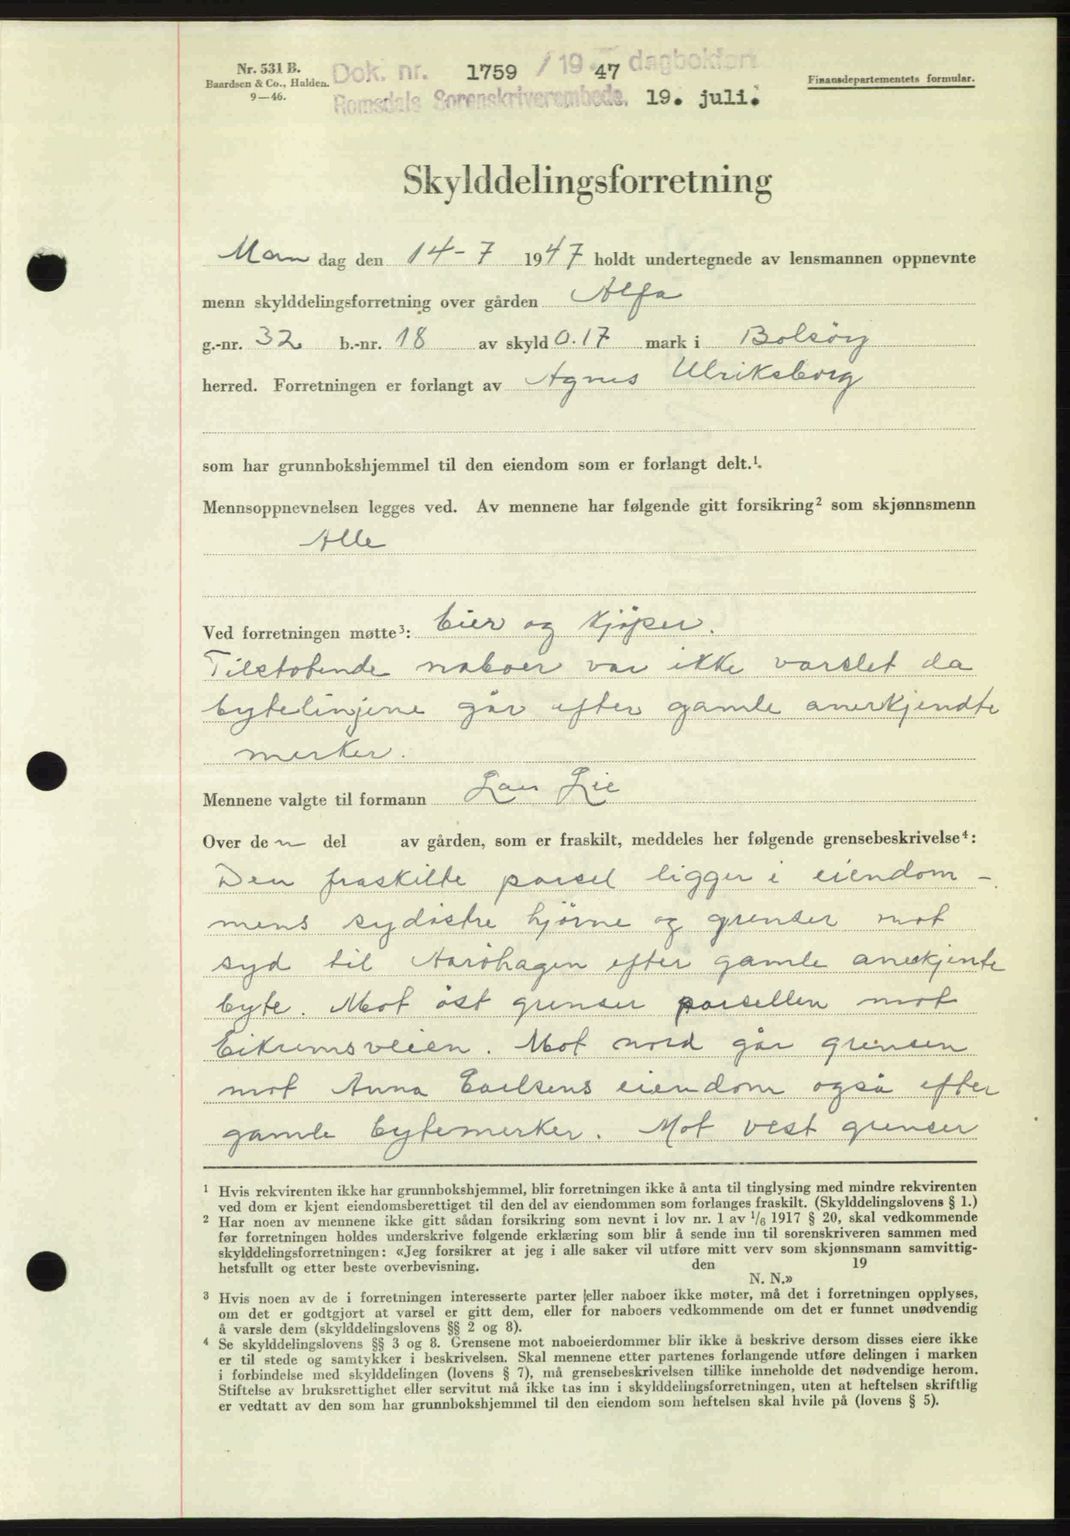 Nr. 531 B.
Baardsen & Co., Halden.
9—46.
Dok. nr. 1759 / 19 47 dagboken
Romsdals Sorenskriverembede. 19. juli.
Finansdepartementets formular.
Skylddelingsforretning
Man dag den 14-7 1947 holdt undertegnede av lensmannen oppnevnte
menn skylddelingsforretning over gården Alfa
g.-nr. 32 b.-nr. 18 av skyld 0.17 mark i Bolsøy
herred. Forretningen er forlangt av Agnes Ulriksborg
som har grunnbokshjemmel til den eiendom som er forlangt delt.¹.
Mennsoppnevnelsen legges ved. Av mennene har følgende gitt forsikring² som skjønnsmenn
Alle
Ved forretningen møtte³: Eier og kjøper.
Tilstøtende naboer var ikke varslet da
bytelinjene går efter gamle anerkjendte
merker.
Mennene valgte til formann Lars Lie
Over de n del av gården, som er fraskilt, meddeles her følgende grensebeskrivelse⁴:
Den fraskilte parsel ligger i eiendom-
mens sydøstre hjørne og grenser mot
syd til Aarøhagen efter gamle anerkjente
byte. Mot øst grenser parsellen mot
Eikremsveien. Mot nord går grensen
mot Anna Carlsens eiendom også efter
gamle bytemerker. Mot vest grenser
¹ Hvis rekvirenten ikke har grunnbokshjemmel, blir forretningen ikke å anta til tinglysing med mindre rekvirenten
ved dom er kjent eiendomsberettiget til den del av eiendommen som forlanges fraskilt. (Skylddelingslovens § 1.)
² Har noen av mennene ikke gitt sådan forsikring som nevnt i lov nr. 1 av 1/6 1917 § 20, skal vedkommende
før forretningen holdes underskrive følgende erklæring som blir å sende inn til sorenskriveren sammen med
skylddelingsforretningen: «Jeg forsikrer at jeg i alle saker vil utføre mitt verv som skjønnsmann samvittig-
hetsfullt og etter beste overbevisning. den 19
N. N.»
³ Hvis noen av de i forretningen interesserte parter eller naboer ikke møter, må det i forretningen opplyses,
om det er godtgjort at varsel er gitt dem, eller for naboers vedkommende om det er funnet unødvendig
å varsle dem (skylddelingslovens §§ 2 og 8).
⁴ Se skylddelingslovens §§ 3 og 8. Grensene mot naboeierdommer blir ikke å beskrive dersom disses eiere ikke
er til stede og samtykker i beskrivelsen. Skal mennene etter partenes forlangende utføre delingen i marken
i forbindelse med skylddelingen (lovens § 7), må grensebeskrivelsen tillike inneholde det nødvendige herom.
Stiftelse av bruksrettighet eller servitut må ikke tas inn i skylddelingsforretningen, uten at heftelsen skriftlig
er vedtatt av den som har grunnbokshjemmel til den eiendom som heftelsen skal hvile på (lovens § 5).